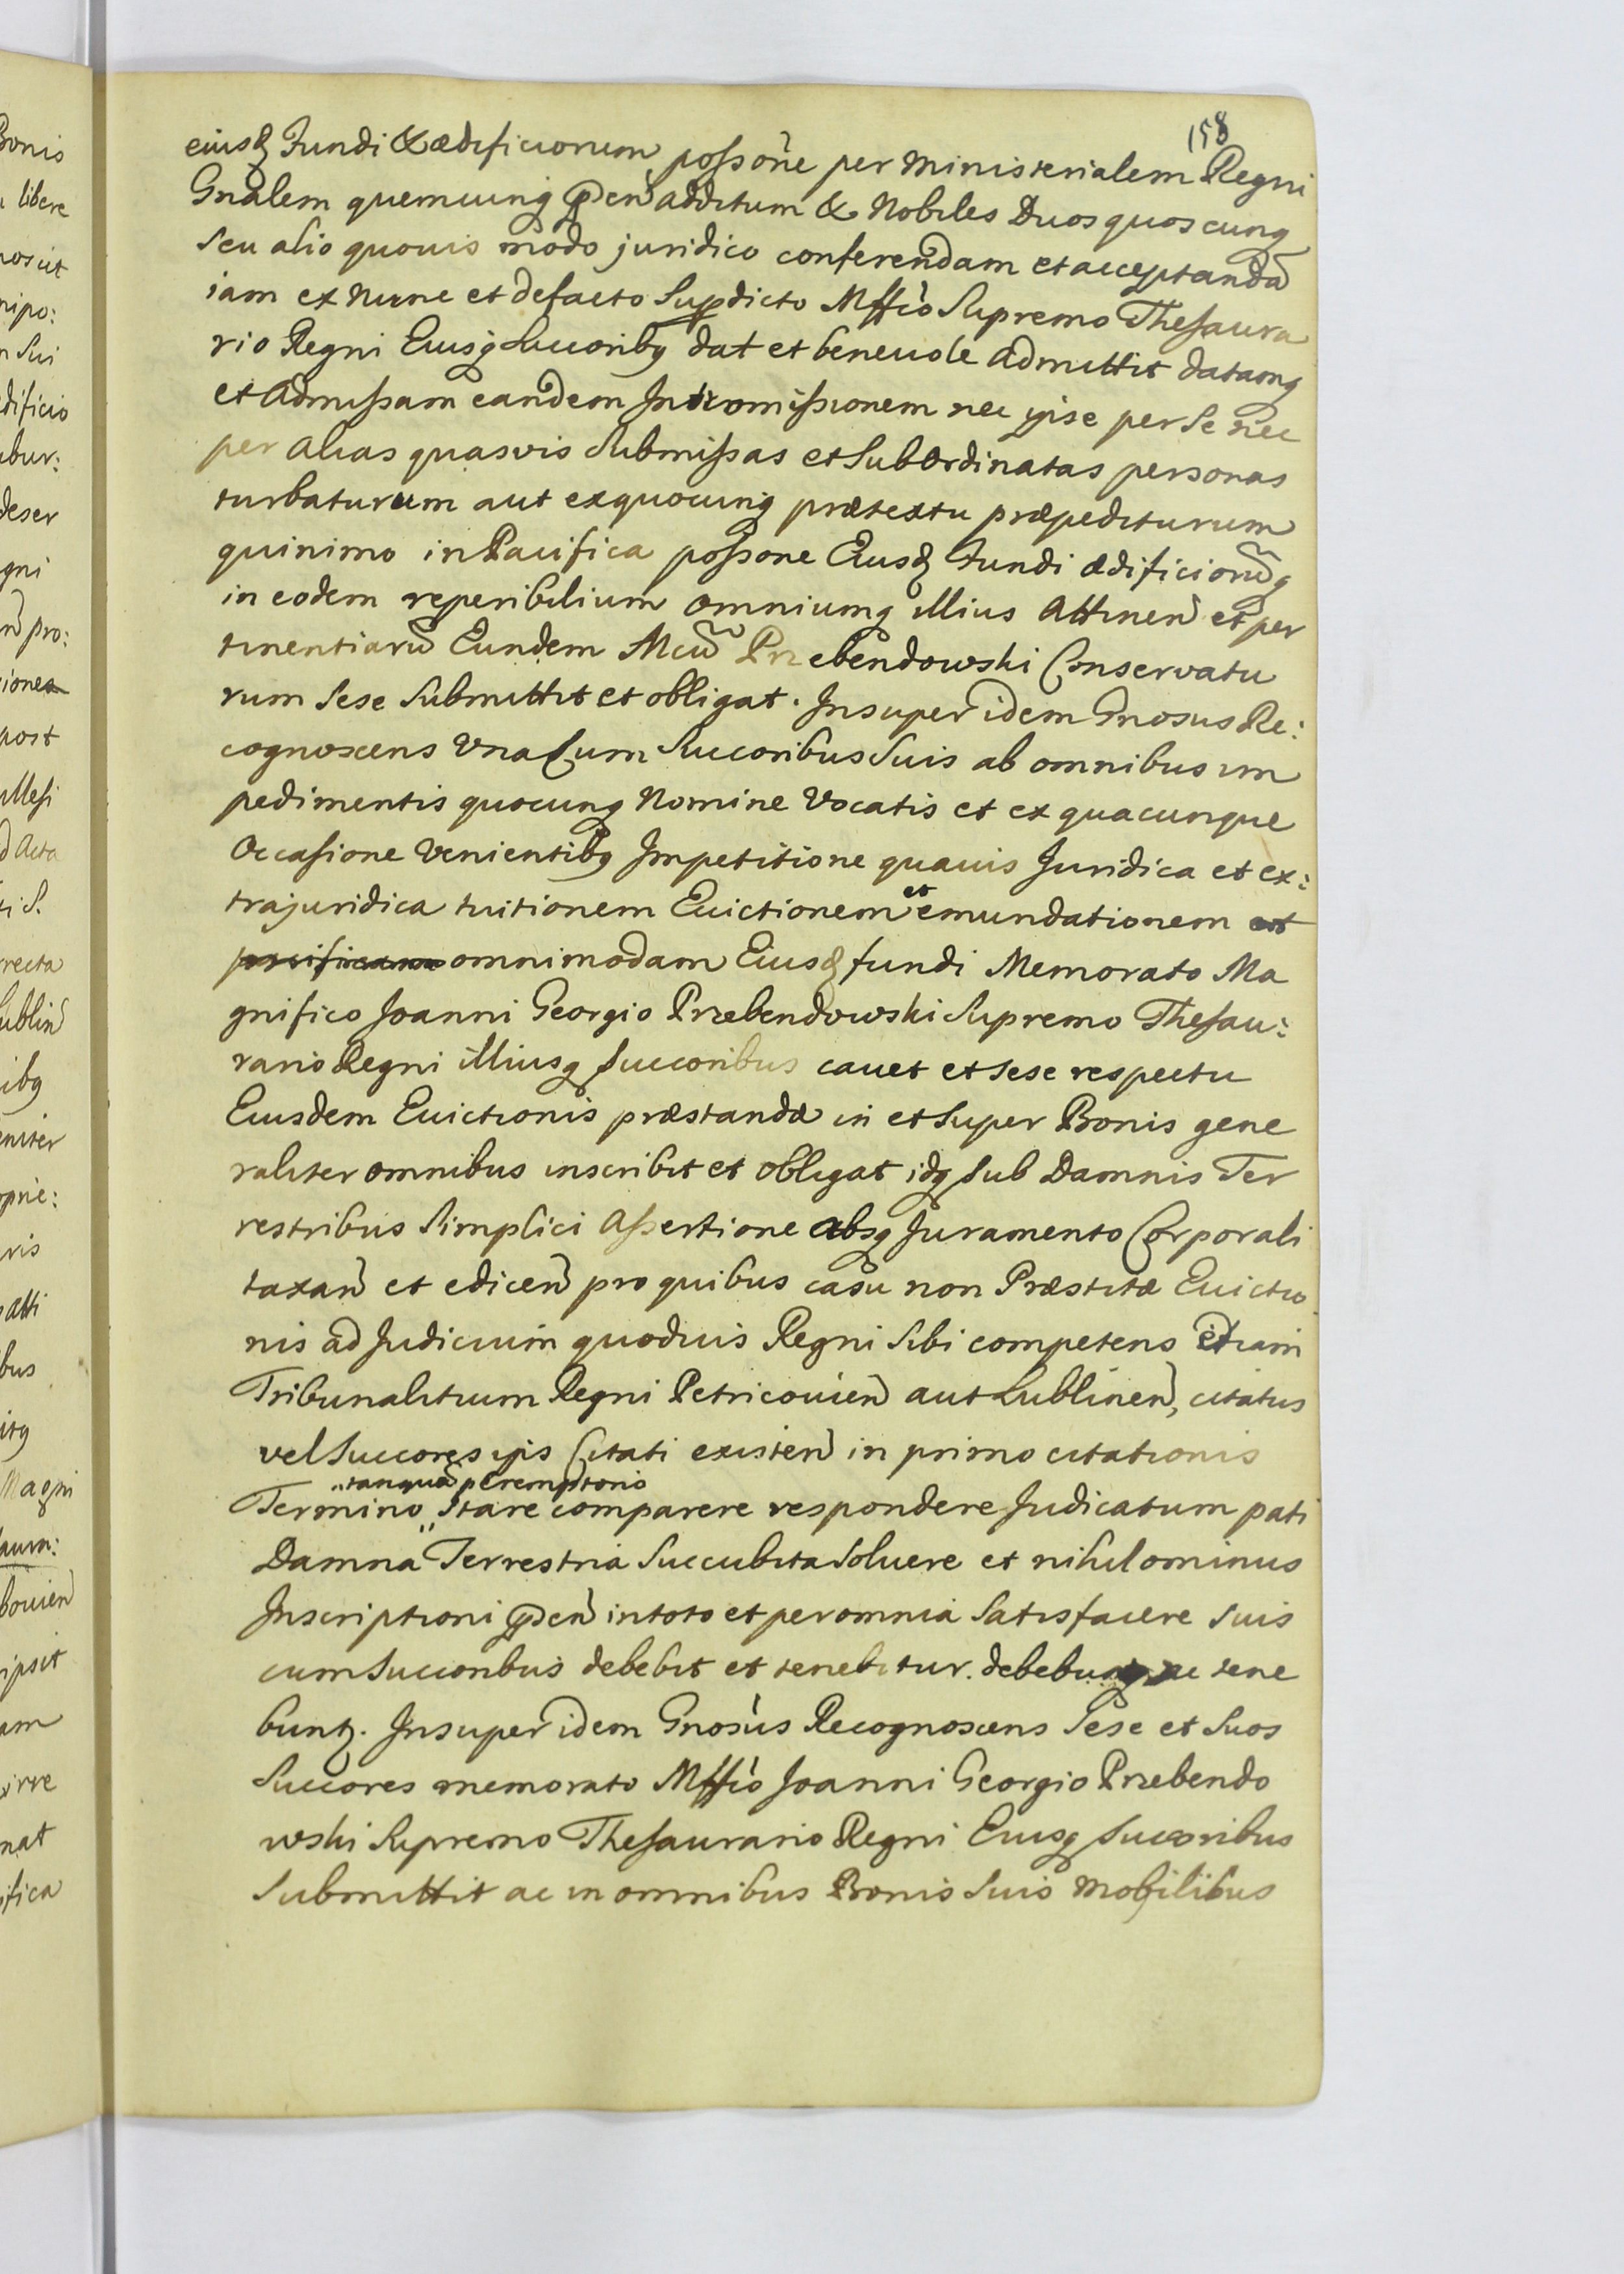 158
eiusq Fundi & ædificiorum possone per Ministerialem Regni
Gnalem quemcunq pñen additum & Nobiles Duos quoscunq
seu alio quouis modo juridico conferendam et acceptandã
iam ex nunc et defacto Supdicto Mffico Supremo Thesaura
rio Regni Eiusq Succoribq dat et beneuole admittit datamq
et admissam eandem Intromissionem nec ipse per se nec
per alias quasvis Submissas et Subordinatas personas
turbaturum aut exquocunq prætextu præpediturum
quinimo in Pacifica possone Eiusd Fundi ædificiorũq
in eodem reperibilium omniumq illius Attinen et per
tinentiarũ Eundem Mcũ Przebendowski Conservatu
rum Sese Submittit et obligat. Insuper idem Gnosus Re:
cognoscens Una Cum Succoribus Suis ab omnibus im
pedimentis quocunq Nomine Vocatis et ex quacunque
Occasione Venientibq Impetitione quauis Juridica et ex:
trajuridica tuitionem Euictionem et emundationem
omnimodam Eiusd fundi Memorato Ma
gnifico Joanni Georgio Przebendowski Supremo Thesau:
rario Regni illiusq Succoribus cauet et sese respectu
Eiusdem Euictionis præstandæ in et Super Bonis gene
raliter omnibus inscribit et obligat idq sub Damnis Ter
restribus Simplici Assertione absq Juramento Corporali
taxañ et ediceñ pro quibus casu non Præstitæ Euictio
nis ad Judicium quoduis Regni Sibi competens etiam
Tribunalitium Regni Petricouieñ aut Lublineñ, citatus
vel Succores ipis Citati existeñ in primo citationis
„tanquã peremptorio
Termino „ Stare comparere respondere Judicatum pati
Damna Terrestria Succubita Soluere et nihilominus
Inscriptioni pñen in toto et per omnia Satisfacere suis
cum Succoribus debebit et tenebitur. debebuntq ac tene
buntq. Insuper idem Gnosus Recognoscens Sese et Suos
Succores memorato Mffico Joanni Georgio Przebendo
wski Supremo Thesaurario Regni Eiusq Succoribus
Submittit ac in omnibus Bonis Suis Mobilibus